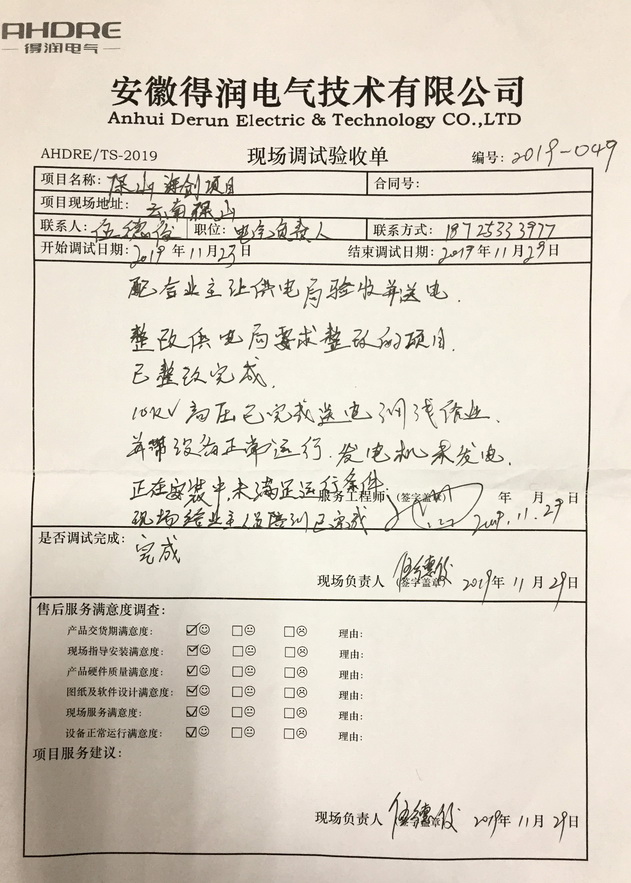 AHDRE
得润电气
安徽得润电气技术有限公司
Anhui Derun Electric & Technology CO.,LTD
AHDRE/TS-2019 现场调试验收单 编号: 2019-049
项目名称: 保山海创项目 合同号:
项目现场地址: 云南保山
联系人: 伍德俊 职位: 电气负责人 联系方式: 18725333977
开始调试日期: 2019年11月23日 结束调试日期: 2019年11月29日
配合业主让供电局验收并送电.
整改供电局要求整改的项目.
已整改完成.
10KV高压已完成送电调试作业.
并带设备正常运行.发电机未发电.
正在安装中未满足运行条件.
服务工程师 (签字盖章) 年 月 日
现场给业主人员培训已完成 2019.11.29
是否调试完成:
完成
现场负责人 (签字盖章) 伍德俊 2019年11月29日
售后服务满意度调查:
产品交货期满意度: ☑☺ □😐 □☹ 理由:
现场指导安装满意度: ☑☺ □😐 □☹ 理由:
产品硬件质量满意度: ☑☺ □😐 □☹ 理由:
图纸及软件设计满意度: ☑☺ □😐 □☹ 理由:
现场服务满意度: ☑☺ □😐 □☹ 理由:
设备正常运行满意度: ☑☺ □😐 □☹ 理由:
项目服务建议:
现场负责人 (签字盖章) 伍德俊 2019年11月29日